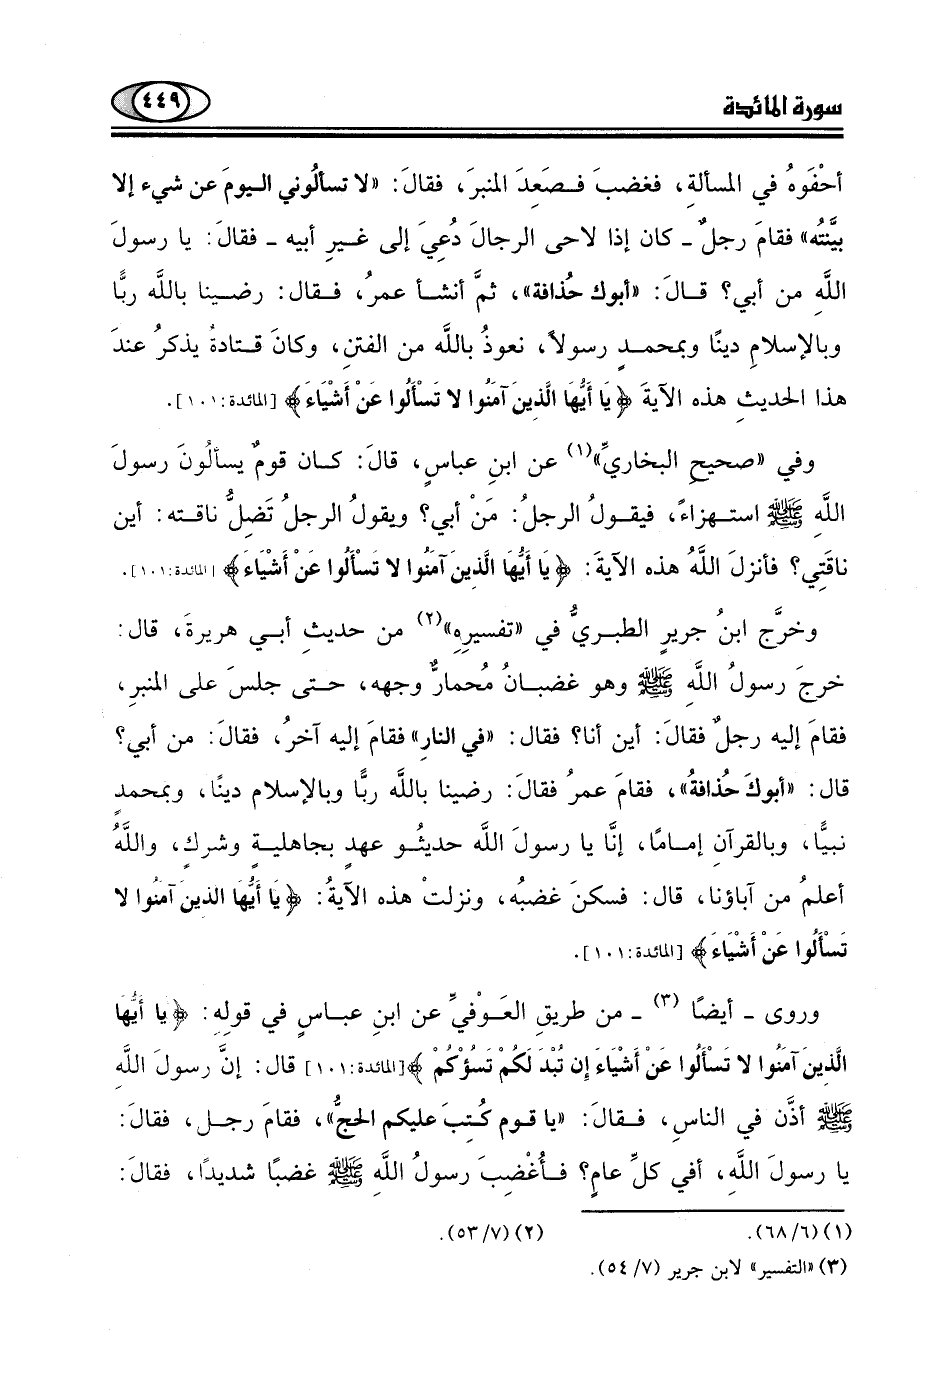 سورة المائدة ٤٤٩
أحْفَوهُ في المسألةِ، فغضبَ فـصَعِدَ المنبرَ، فقالَ: «لا تسألُوني اليومَ عن شيءٍ إلا
بيَّنتُه» فقامَ رجلٌ ـ كان إذا لاحى الرجالَ دُعِيَ إلى غيرِ أبيه ـ فقالَ: يا رسولَ
اللَّهِ من أبي؟ قالَ: «أبوك حُذافة»، ثمَّ أنشأ عمرُ، فقال: رضينا باللَّه ربًّا
وبالإسلامِ دينًا وبمحمدٍ رسولاً، نعوذُ باللَّه من الفتنِ، وكانَ قتادةُ يذكرُ عندَ
هذا الحديثِ هذه الآيةَ ﴿يَا أَيُّهَا الَّذِينَ آمَنُوا لا تَسْأَلُوا عَنْ أَشْيَاءَ﴾ [المائدة:١٠١].
وفي «صحيحِ البخاريِّ»(١) عن ابنِ عباسٍ، قالَ: كان قومٌ يسألُونَ رسولَ
اللَّهِ ﷺ استهزاءً، فيقولُ الرجلُ: مَنْ أبي؟ ويقولُ الرجلُ تَضلُّ ناقته: أين
ناقَتِي؟ فأنزلَ اللَّهُ هذه الآيةَ: ﴿يَا أَيُّهَا الَّذِينَ آمَنُوا لا تَسْأَلُوا عَنْ أَشْيَاءَ﴾ [المائدة:١٠١].
وخرَّج ابنُ جريرٍ الطبريُّ في «تفسيرِهِ»(٢) من حديثِ أبي هريرةَ، قال:
خرجَ رسولُ اللَّهِ ﷺ وهو غضبانُ مُحمارٌّ وجهه، حتى جلسَ على المنبرِ،
فقامَ إليه رجلٌ فقالَ: أين أنا؟ فقال: «في النارِ» فقامَ إليه آخرُ، فقالَ: من أبي؟
قال: «أبوكَ حُذافةُ»، فقامَ عمرُ فقالَ: رضينا باللَّه ربًّا وبالإسلام دينًا، وبمحمدٍ
نبيًّا، وبالقرآنِ إمامًا، إنَّا يا رسولَ اللَّه حديثُو عهدٍ بجاهليةٍ وشركٍ، واللَّهُ
أعلمُ من آباؤنا، قال: فسكنَ غضبُه، ونزلتْ هذه الآيةُ: ﴿يَا أَيُّهَا الذينَ آمَنُوا لا
تَسْأَلُوا عَنْ أَشْيَاءَ﴾ [المائدة:١٠١].
وروى ـ أيضًا (٣) ـ من طريقِ العَوْفيِّ عن ابنِ عباسٍ في قولِهِ: ﴿يا أَيُّهَا
الَّذِينَ آمَنُوا لا تَسْأَلُوا عَنْ أَشْيَاءَ إِن تُبْدَ لَكُمْ تَسُؤْكُمْ﴾ [المائدة:١٠١] قال: إنَّ رسولَ اللَّه
ﷺ أذَّن في الناسِ، فقالَ: «يا قومِ كُتبَ عليكم الحجُّ»، فقامَ رجلٌ، فقالَ:
يا رسولَ اللَّهِ، أفي كلِّ عامٍ؟ فأُغْضِبَ رسولُ اللَّهِ ﷺ غضبًا شديدًا، فقالَ:
(١) (٦٨/٦). (٢) (٥٣/٧).
(٣) «التفسير» لابن جرير (٥٤/٧).